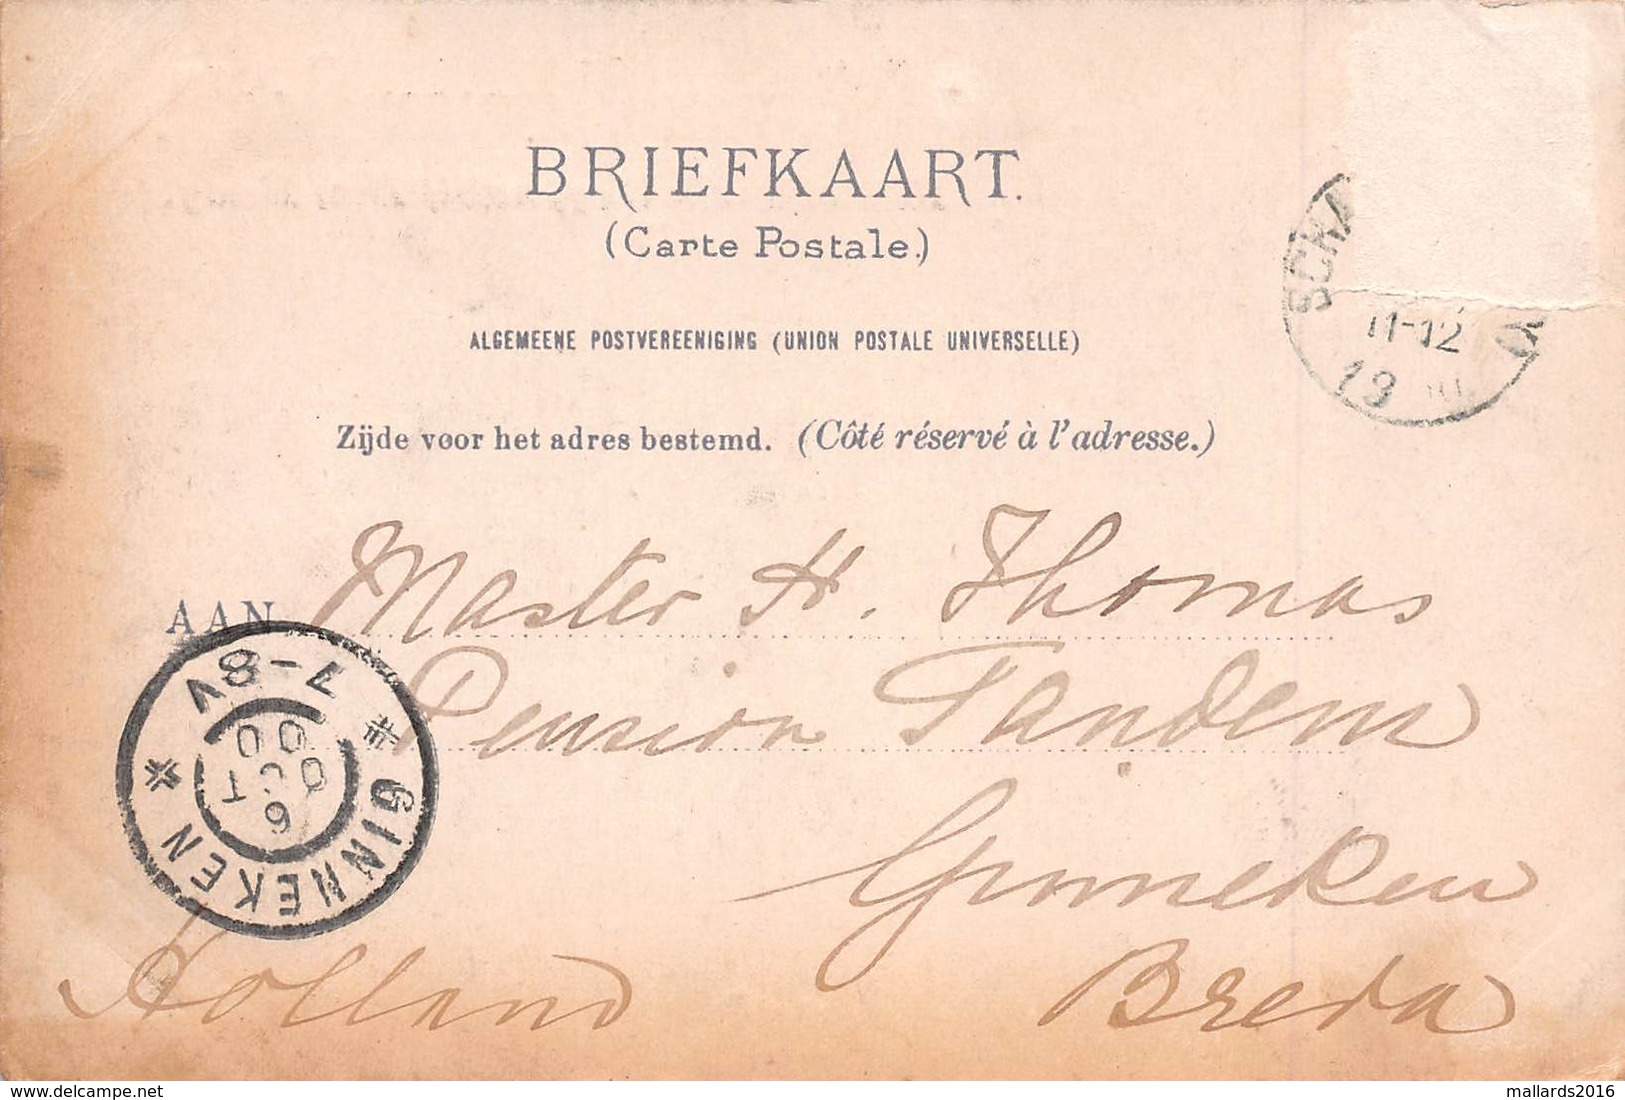 BRIEFKAART.
(Carte Postale.)
ALGEMEENE POSTVEREENIGING (UNION POSTALE UNIVERSELLE)
Zijde voor het adres bestemd. (Côté réservé à l'adresse.)
SCHA
11-12
19
AAN Master H. Thomas
Pension Tandem
Ginneken
Breda
Holland
7-8V
* GINNEKEN *
6
OCT
00
delcampe.net
mallards2016